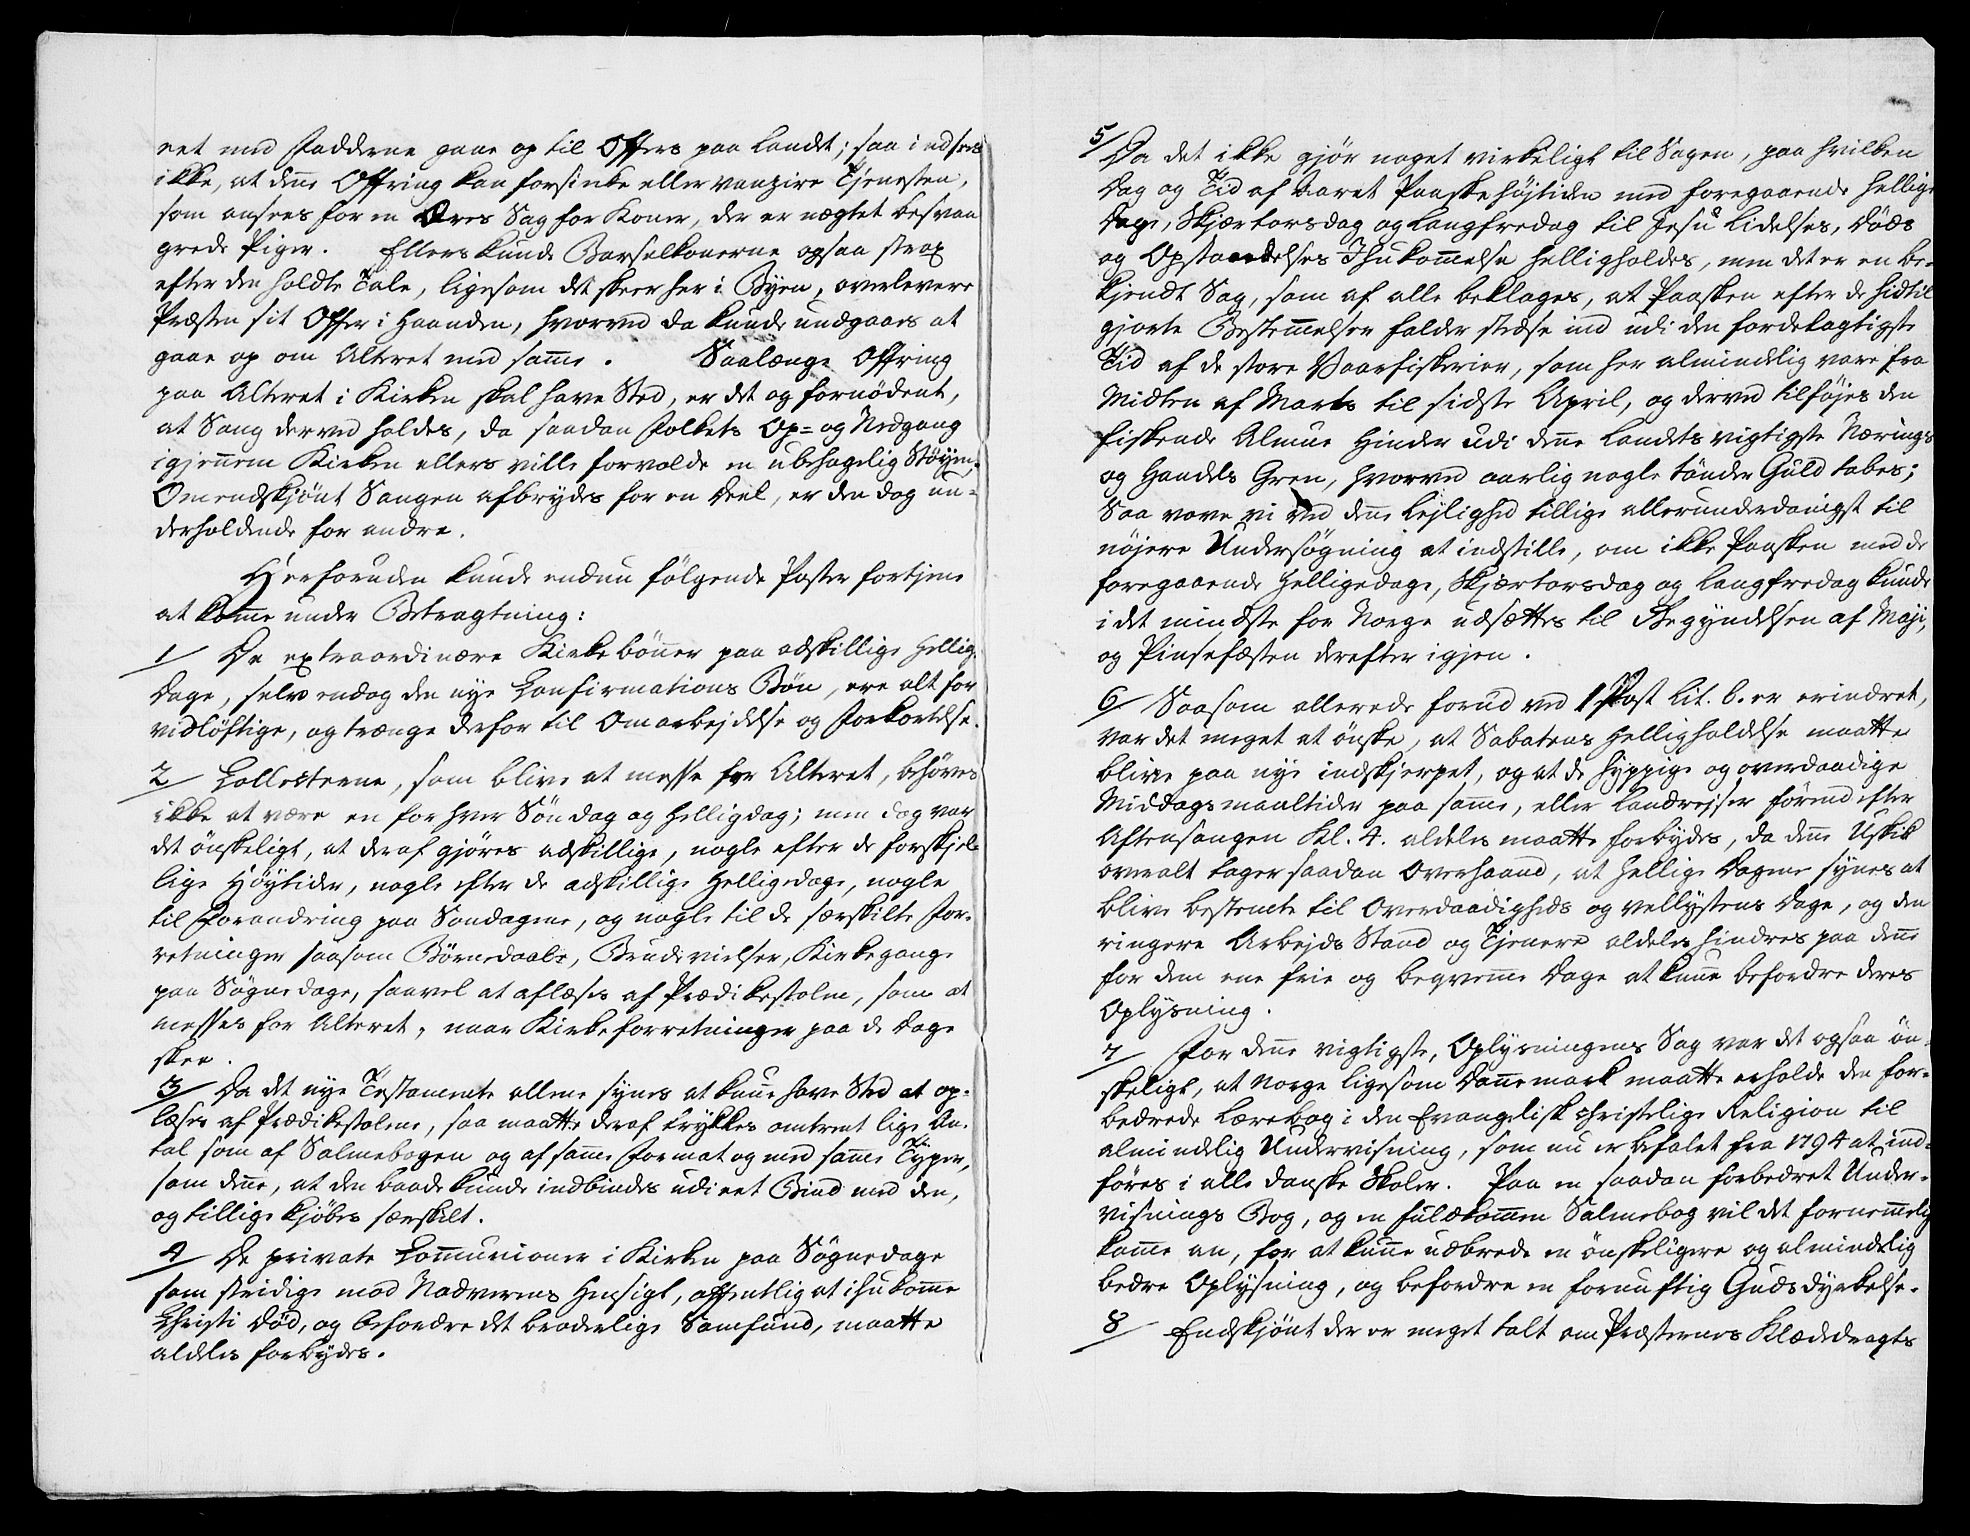 net med Fadderne gaae op til Offers paa Landet; saa indsees
ikke, at denne Offring kan forsinke eller vanzire Tjenesten,
som ansees for en Æres Sag for Koner, der er nægtet besvan
grede Piger. Ellers kunde Barselkonerne ogsaa strax
efter den holdte Tale, ligesom det skeer her i Byen, overlevere
Præsten sit Offer i Haanden, hvorved da kunde undgaaes at
gaae op om Alteret med samme. Saalænge Offring
paa Alteret i Kirken skal have Sted, er det og fornødent,
at Sang derved holdes, da saadan Folkets Op= og Nedgang
igjennem Kirken ellers ville forvolde en ubehagelig Støyen.
Omendskjønt Sangen afbrydes for en Deel, er den dog un=
derholdende for andre.
Herforuden kunde endnu følgende Poster fortjene
at komme under Betragtning:
1/ De extraordinære Kirkebønner paa adskillige Hellig
Dage, selv endog den nye Confirmations Bøn, ere alt for
vidløftige, og trænge derfor til Omarbejdelse og Forkortelse.
2/ Collecterne, som blive at messe for Alteret, behøves
ikke at være en for hver Søndag og Helligdag; men dog var
det ønskeligt, at deraf gjøres adskillige, nogle efter de forskjel
lige Høytider, nogle efter de adskillige Helligedage, nogle
til Forandring paa Søndagene, og nogle til de særskilte For=
retninger saasom Børnedaab, Brudevielser, Kirkegange
paa Søgnedage, saavel at aflæses af Prædikestolen, som at
messes for Alteret, naar Kirkeforretninger paa de Dage
skee.
3/ Da det nye Testamente allene synes at kunne have Sted at op=
læses af Prædikestolene, saa maatte deraf trykkes omtrent lige An=
tal som af Salmebogen og af samme Format og med samme Typer,
som denne, at den baade kunde indbindes udi eet Bind med den,
og tillige kjøbes særskilt.
4/ De private Communioner i Kirken paa Søgnedage
som stridige mod Nadverens Hensigt, offentlig at ihukomme
Christi Død, og befordre det broderlige Samfund, maatte
aldeles forbydes.
5/ Da det ikke gjør noget virkeligt til Sagen, paa hvilken
Dag og Tid af Aaret Paaskehøjtiden med foregaaende hellige
Dage, Skjærtorsdag og Langfredag til Jesu Lidelses, Døds
og Opstandelses Ihukommelse helligholdes, men det er en be=
kjendt Sag, som af alle beklages, at Paasken efter de hidtil
gjorte Bestemmelser falder stedse ind udi den fordelagtigste
Tid af de store Vaarfiskerier, som her almindelig vare fra
Midten af Marts til sidste April, og derved tilføjes den
fiskende Almue Hinder udi denne Landets vigtigste Nærings
og Handels Green, hvorved aarlig nogle Tønder Guld tabes;
Saa vove vi ved denne Lejlighed tillige allerunderdanigst til
nøjere Undersøgning at indstille, om ikke Paasken med de
foregaaende Helligedage, Skjærtorsdag og Langfredag kunde
i det mindste for Norge udsættes til Begyndelsen af Maji,
og Pinsefæsten derefter igjen.
6/ Saasom allerede forud ved 1 Post Lit. b. er erindret,
var det meget at ønske, at Sabatens Helligholdelse maatte
blive paa nye indskjerpet, og at de hyppige og overdaadige
Middagsmaaltider paa samme, eller Landrejser førend efter
Aftensangen Kl. 4. aldeles maatte forbydes, da denne Uskik
overalt tager saadan Overhaand, at Hellige Dagene synes at
blive bestemte til Overdaadigheds og Vellystens Dage, og den
ringere Arbejds Stand og Tjenere aldeles hindres paa denne
for dem ene frie og beqvemme Dage at kunne befordre deres
Oplysning.
7/ For denne vigtigste, Oplysningens Sag var det ogsaa øn=
skeligt, at Norge ligesom Dannemark maatte erholde den for=
bedrede Lærebog i den Evangelisk christelige Religion til
almindelig Undervisning, som nu er befalet fra 1794 at ind=
føres i alle danske Skoler. Paa en saadan forbedret Under=
visnings Bog, og en fuldkommen Salmebog vil det fornemmelig
komme an, for at kunne udbrede en ønskeligere og almindelig
bedre Oplysning, og befordre en fornuftig Gudsdyrkelse.
8/ Endskjønt der er meget talt om Præsternes Klædedragts